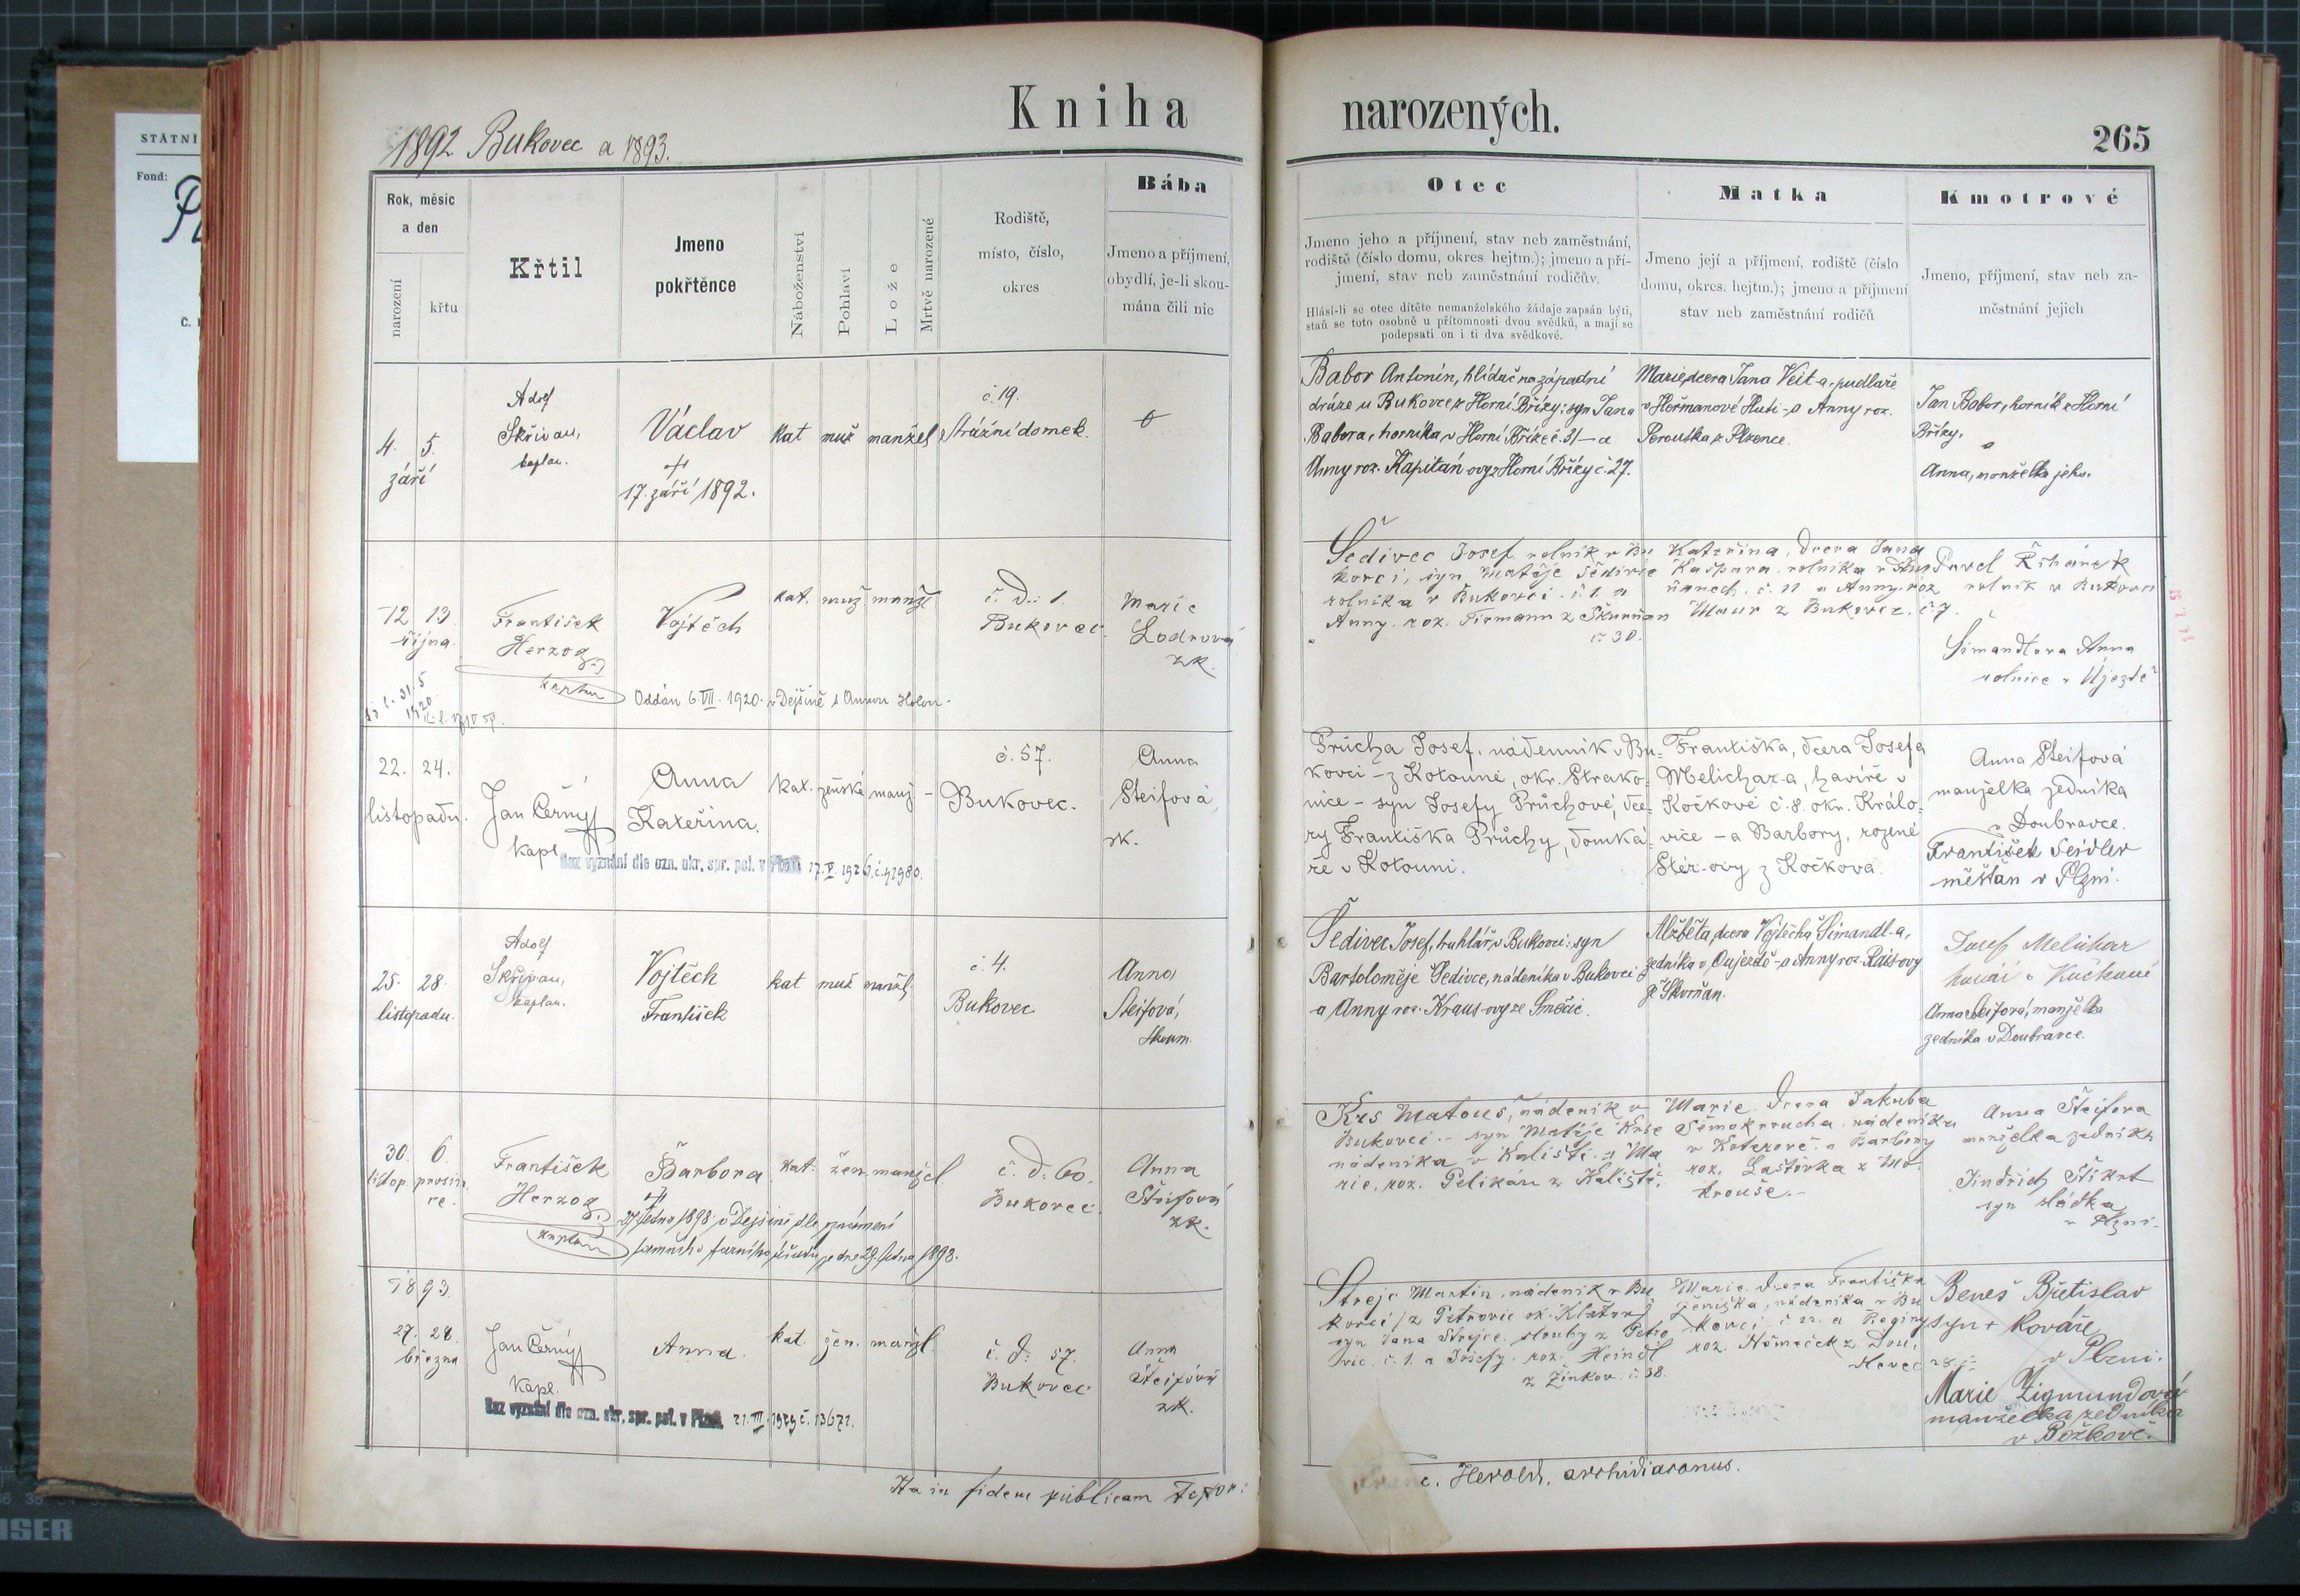 STÁTNÍ
Fond:
Kniha narozených.
265
1892 Bukovec a 1893.
Rok, měsíc
a den
narození
křtu
Křtil
Jmeno
pokřtěnce
Náboženství
Pohlaví
Lože
Mrtvě narozené
Rodiště,
místo, číslo,
okres
Bába
Jmeno a příjmení,
obydlí, je-li skou-
mána čili nic
Otec
Jmeno jeho a příjmení, stav neb zaměstnání,
rodiště (číslo domu, okres hejtm.); jmeno a pří-
jmení, stav neb zaměstnání rodičův.
Hlásí-li se otec dítěte nemanželského žádaje zapsán býti,
staň se toto osobně u přítomnosti dvou svědků, a mají se
podepsati on i ti dva svědkové.
Matka
Jmeno její a příjmení, rodiště (číslo
domu, okres. hejtm.); jmeno a příjmení
stav neb zaměstnání rodičů
Kmotrové
Jmeno, příjmení, stav neb za-
městnání jejich
4. 5.
září
Adolf
Skřivan,
kaplan.
Václav
+
17. září 1892.
kat muž manžel
č. 19.
Strážní domek.
Babor Antonín, hlídač na západní
dráze u Bukovce z Horní Břízy; syn Jana
Babora, horníka v Horní Bříze č. 31 – a
Anny roz. Kapitán-ovy z Horní Břízy č. 27.
Marie, dcera Jana Veit-a, pudlaře
v Heřmanově Huti – a Anny roz.
Peroutka z Plzence.
Jan Babor, horník z Horní
Břízy,
a
Anna, manželka jeho.
12 13
října.
František
Herzog
kaplan
Vojtěch
Oddán 6. VII. 1920. v Dejšině s Annou
kat. muž manže
č. d.: 1.
Bukovec.
Marie
Lodrová
zk.
Šedivec Josef rolník v Bu
kovci, syn Matěje Šedivce
rolníka v Bukovci č. 1. a
Anny roz. Tirmann z Škvrňan
č. 30.
Kateřina, dcera Jana
Kašpara, rolníka v
č. 11 a Anny roz
Maur z Bukovce. č. 7.
Pavel
rolník v Bukovci
Šimandlova Anna
rolnice v Újezdě
22. 24.
listopadu.
Jan Černý
kapl.
Anna
Kateřina.
Bez vyznání dle ozn. okr. spr. pol. v Plzni 17. V. 1926. č. 41980.
kat. ženské manž –
č. 57.
Bukovec.
Anna
Steifová,
zk.
Průcha Josef, nádenník v Bu-
kovci – z Kotouně, okr. Strako-
nice – syn Josefy Průchové, dce-
ry Františka Průchy, domká-
ře v Kotouni.
Františka, dcera Josefa
Melichar-a, havíře v
Kočkově č. 8. okr. Králo-
vice – a Barbory, rozené
Stér-ovy z Kočkova.
Anna Steifová
manželka zedníka
v Doubravce.
František Seidler
měšťan v Plzni.
25. 28.
listopadu.
Adolf
Skřivan,
kaplan.
Vojtěch
František
kat muž manžl.
č. 4.
Bukovec
Anna
Steifová,
skoum.
Šedivec Josef, truhlář v Bukovci: syn
Bartoloměje Šedivce, nádeníka v Bukovci
a Anny roz. Kraus-ovy ze Smědčic.
Alžběta, dcera Vojtěcha Šimandl-a,
zedníka v Oujezdě – a Anny roz. Rais-ovy
z Skvrňan.
Josef Melichar
havíř v Kočkově
Anna Steifová, manželka
zedníka v Doubravce.
30. 6.
listop. prosin-
ce.
František
Herzog
kaplan
Barbora.
+
27. ledna 1898 v Dejšině dle oznámení
tamního farního úřadu ze dne 29. ledna 1898.
kat. žen. manžel
č. d. 60.
Bukovec.
Anna
Šteifová
zk.
Krs Matouš, nádeník v
Bukovci – syn Matěje Krse
nádeníka v Kališti a Ma
rie, roz. Pelikán z Kaliště.
Marie, dcera Jakuba
nádeníka
v Koterově a Barbory
roz. Laštovka z Mo-
krouše. –
Anna Šteifova
manželka zedníka
Jindřich Štikrt
syn sládka
v Plzni.
1893.
27. 28.
března
Jan Černý
kapl.
Anna.
Bez vyznání dle ozn. okr. spr. pol. v Plzni, 21. III. 1929 č. 13671.
kat. žen. manžl.
č. d: 57.
Bukovec
Anna
Šteifová
zk.
Strejc Martin, nádeník v Bu
kovci / z Petrovic ok. Klatov
syn Jana Strejce, slouhy z Petro
vic č. 1. a Josefy roz. Heindl
z Žinkov č. 38.
Marie, dcera Františka
Ženíška, nádeníka v Bu
kovci č. 22. a Reginy
roz. Němeček z Dou,
Beneš Břetislav
syn + kováře
v Plzni.
Marie Zigmundová
manželka zedníka
v Božkově.
Ita in fidem publicam
Herold, archidiaconus.